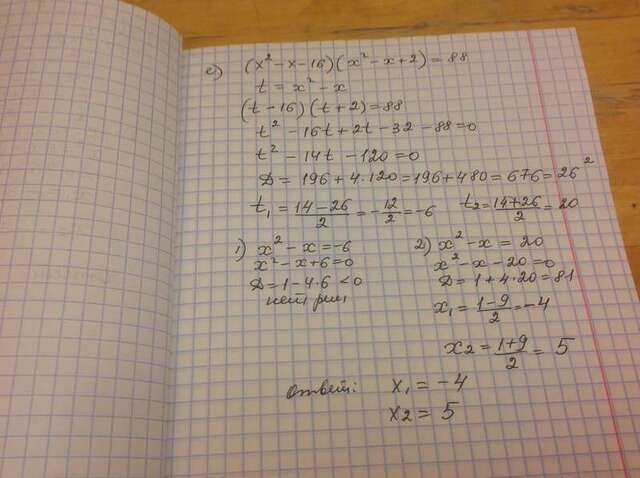 с) (x² - x - 16)(x² - x + 2) = 88
t = x² - x
(t - 16)(t + 2) = 88
t² - 16t + 2t - 32 - 88 = 0
t² - 14t - 120 = 0
D = 196 + 4·120 = 196 + 480 = 676 = 26²
t₁ = (14-26)/2 = -12/2 = -6 t₂ = (14+26)/2 = 20
1) x² - x = -6
x² - x + 6 = 0
D = 1 - 4·6 < 0
нет реш,
2) x² - x = 20
x² - x - 20 = 0
D = 1 + 4·20 = 81
x₁ = (1-9)/2 = -4
x₂ = (1+9)/2 = 5
Ответ: x₁ = -4
x₂ = 5